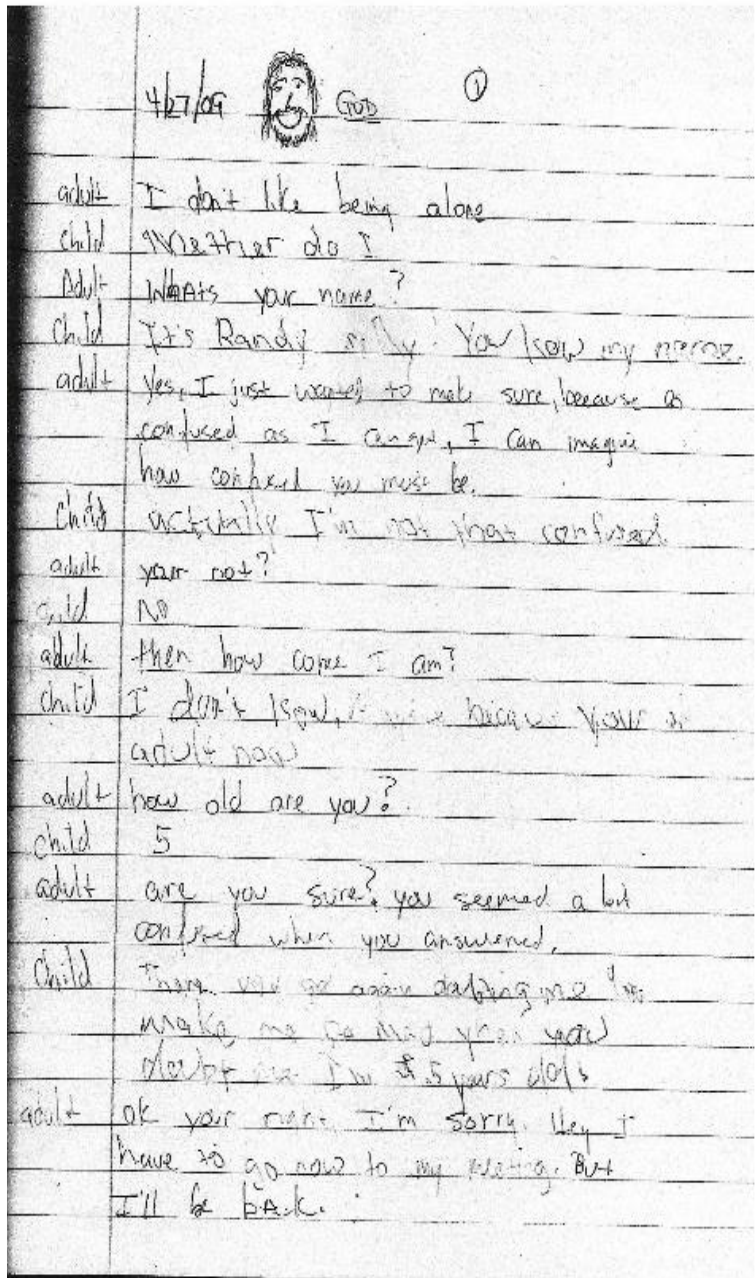 4/27/09 GOD 1
adult I don't like being alone
child Niether do I
Adult WHAts your name?
Child It's Randy silly! You know my name.
adult yes, I just wanted to make sure, because as
confused as I can get, I can imagine
how confused you must be.
Child actually I'm not that confused
adult your not?
child No
adult then how come I am?
child I don't know, because your
adult now
adult how old are you?
child 5
adult are you sure? you seemed a bit
confused when you answered.
Child There you go again me
make me so mad when you
I'm 5 years old
adult ok your right I'm sorry. Hey I
have to go now to my meeting. But
I'll be bAck.